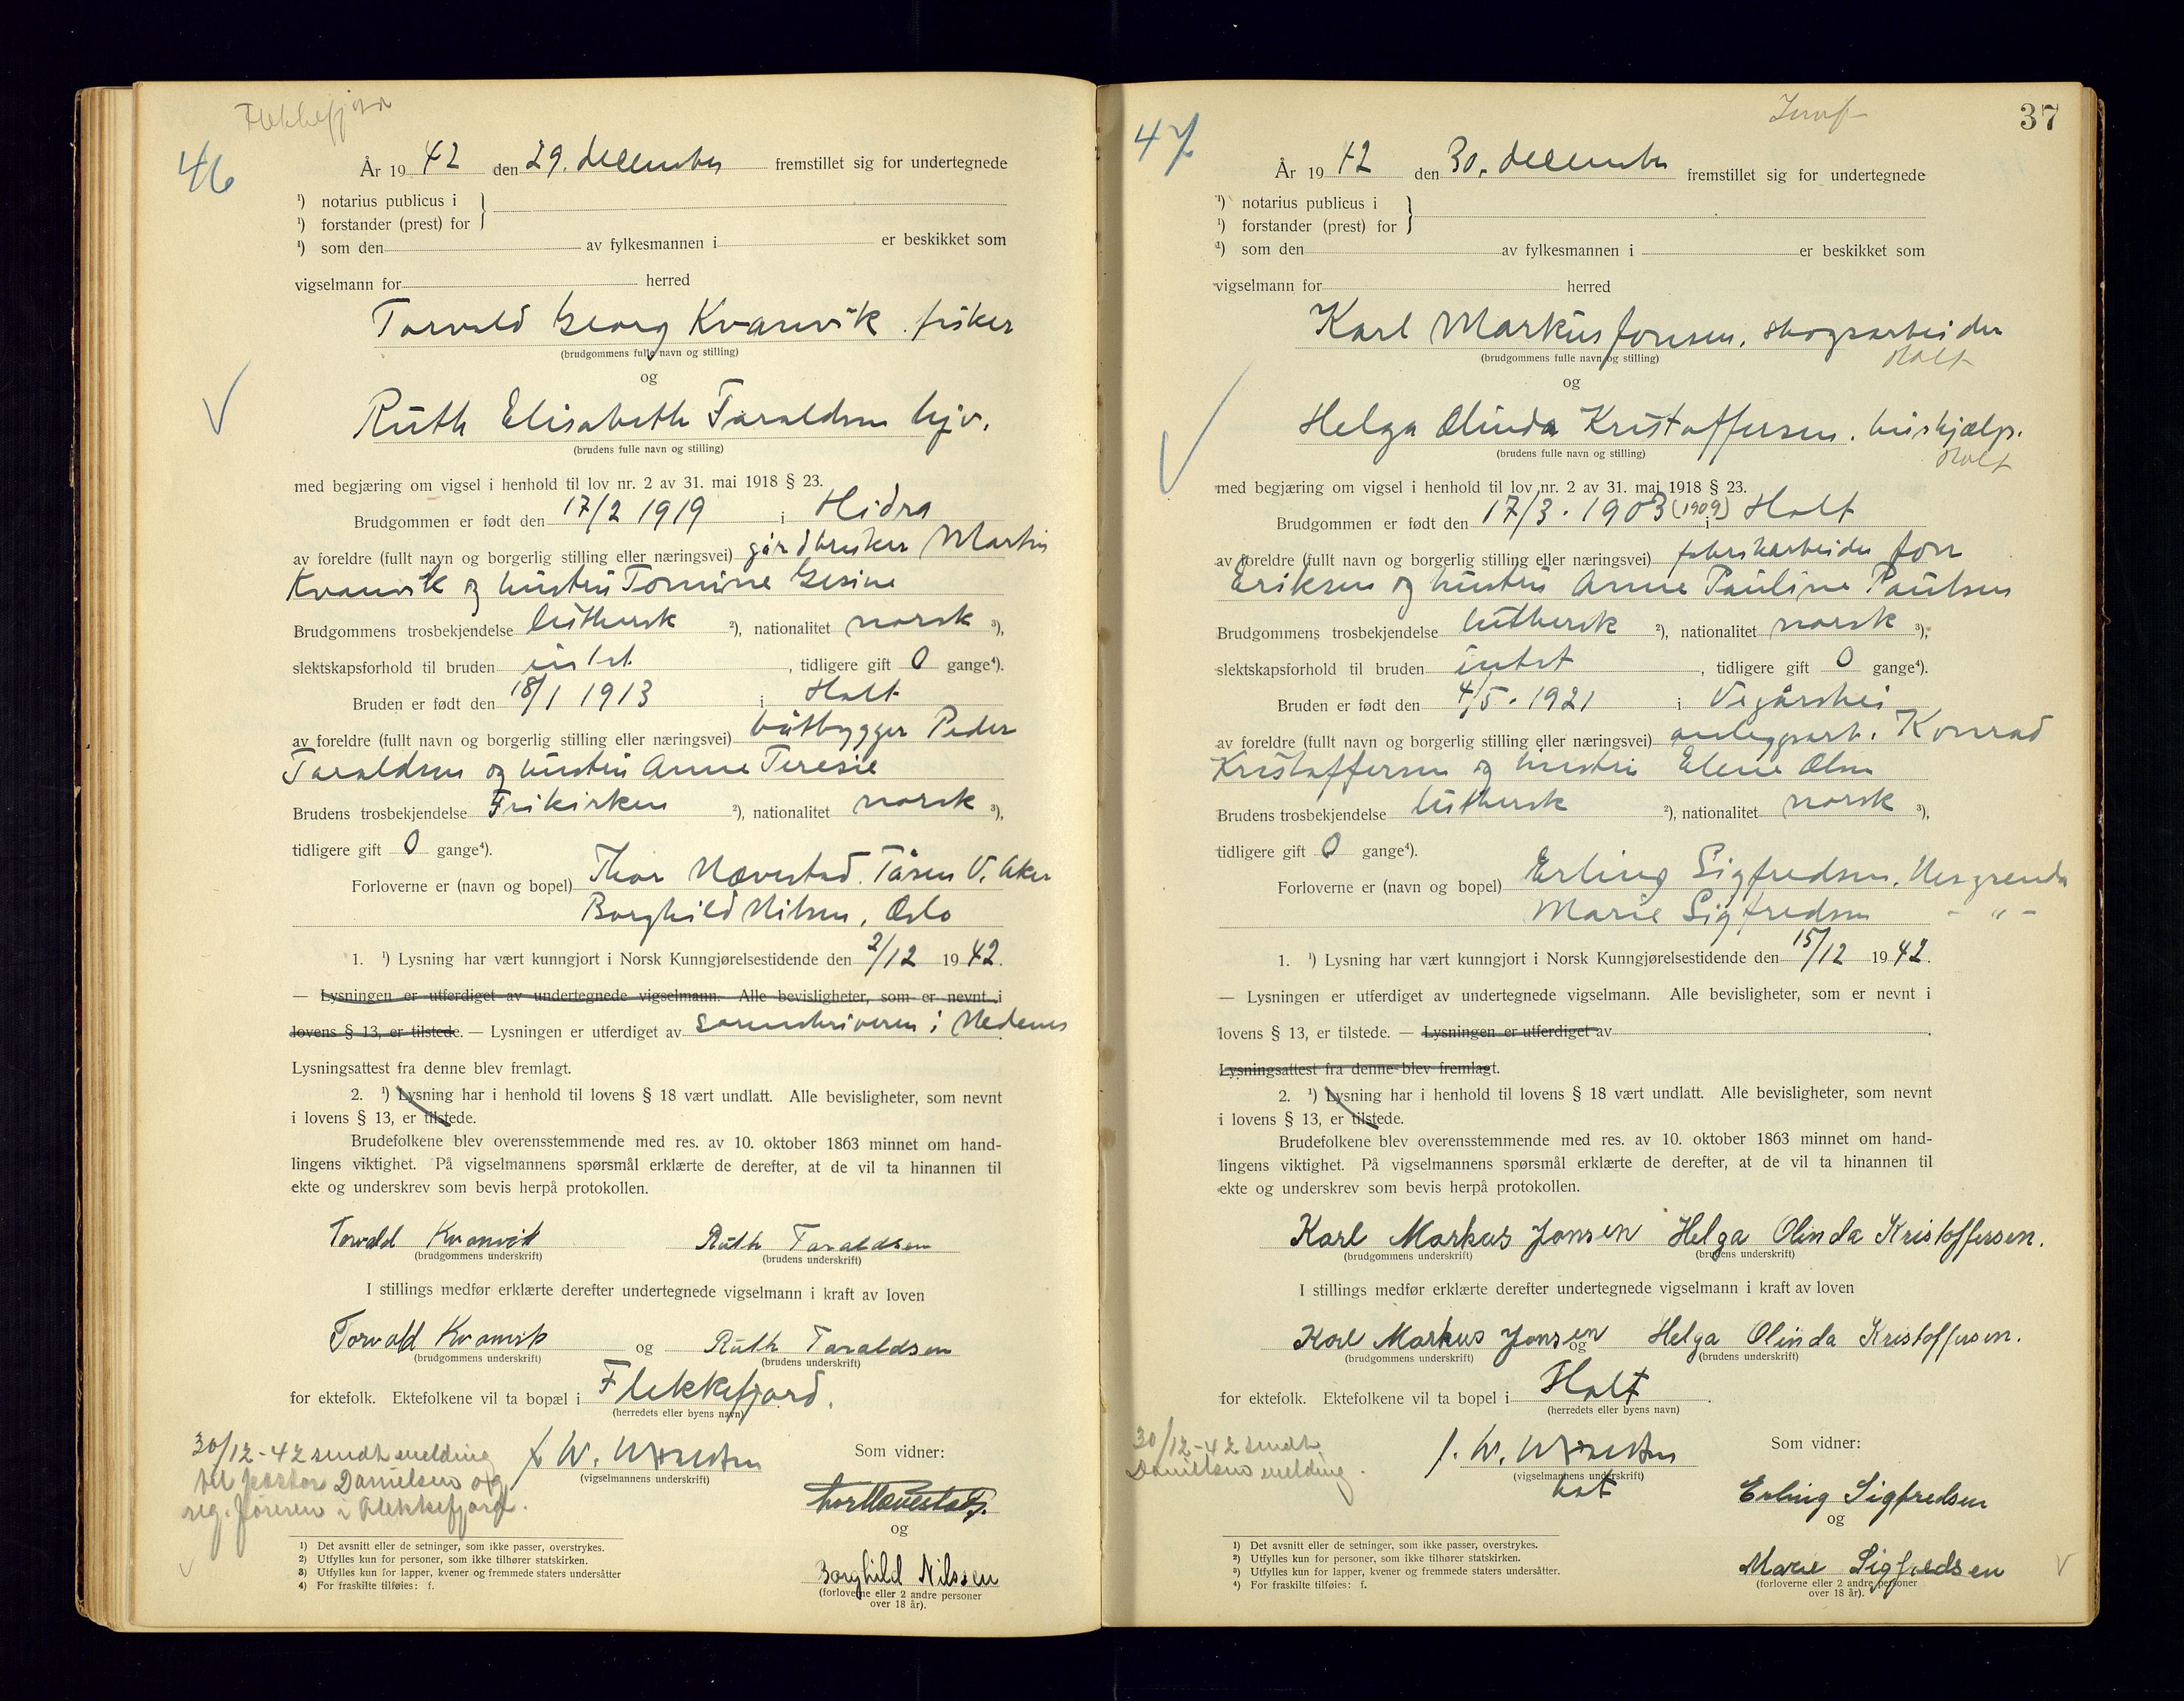 Flekkefjord
46
År 19 42 den 29. december fremstillet sig for undertegnede
¹) notarius publicus i
¹) forstander (prest) for
¹) som den av fylkesmannen i er beskikket som
vigselmann for herred
Torvald Georg Kvanvik. fisker
(brudgommens fulle navn og stilling)
og
Ruth Elisabeth Taraldsen hjv.
(brudens fulle navn og stilling)
med begjæring om vigsel i henhold til lov nr. 2 av 31. mai 1918 § 23.
Brudgommen er født den 17/2 1919 i Hidra
av foreldre (fullt navn og borgerlig stilling eller næringsvei) gårdbruker Martin
Kvanvik og hustru Tomine Gesine
Brudgommens trosbekjendelse luthersk ²), nationalitet norsk ³),
slektskapsforhold til bruden intet, tidligere gift 0 gange⁴).
Bruden er født den 18/1 1913 i Holt
av foreldre (fullt navn og borgerlig stilling eller næringsvei) båtbygger Peder
Taraldsen og hustru Anne Teresie
Brudens trosbekjendelse Frikirken ²), nationalitet norsk ³),
tidligere gift 0 gange⁴).
Forloverne er (navn og bopel) Thor Nævestad. Tåsen V. Aker
Borghild Nilsen, Oslo
1. ¹) Lysning har vært kunngjort i Norsk Kunngjørelsestidende den 2/12 1942.
— Lysningen er utferdiget av undertegnede vigselmann. Alle bevisligheter, som er nevnt i
lovens § 13, er tilstede. — Lysningen er utferdiget av sorenskriveren i Nedenes
Lysningsattest fra denne blev fremlagt.
2. ¹) Lysning har i henhold til lovens § 18 vært undlatt. Alle bevisligheter, som nevnt
i lovens § 13, er tilstede.
Brudefolkene blev overensstemmende med res. av 10. oktober 1863 minnet om hand-
lingens viktighet. På vigselmannens spørsmål erklærte de derefter, at de vil ta hinannen til
ekte og underskrev som bevis herpå protokollen.
Torvald Kvanvik Ruth Taraldsen
(brudgommens underskrift) (brudens underskrift)
I stillings medfør erklærte derefter undertegnede vigselmann i kraft av loven
Torvald Kvanvik og Ruth Taraldsen
(brudgommens underskrift) (brudens underskrift)
for ektefolk. Ektefolkene vil ta bopæl i Flekkefjord.
(herredets eller byens navn)
30/12-42 sendt melding
til pastor Danielsen og
reg. føreren i Flekkefjord.
(vigselmannens underskrift)
Som vidner:
Thor Nævestad
og
Borghild Nilssen
(forloverne eller 2 andre personer
over 18 år).
1) Det avsnitt eller de setninger, som ikke passer, overstrykes.
2) Utfylles kun for personer, som ikke tilhører statskirken.
3) Utfylles kun for lapper, kvener og fremmede staters undersåtter
4) For fraskilte tilføies: f.
37
47
År 19 42 den 30. december fremstillet sig for undertegnede
¹) notarius publicus i
¹) forstander (prest) for
¹) som den av fylkesmannen i er beskikket som
vigselmann for herred
Karl Markus Jonsen. skogsarbeider
Holt
(brudgommens fulle navn og stilling)
og
Helga Olinda Kristoffersen. hushjælp.
Holt
(brudens fulle navn og stilling)
med begjæring om vigsel i henhold til lov nr. 2 av 31. mai 1918 § 23.
Brudgommen er født den 17/3. 1903 (1909) i Holt
av foreldre (fullt navn og borgerlig stilling eller næringsvei) fabrikarbeider Jon
Eriksen og hustru Anne Pauline Paulsen
Brudgommens trosbekjendelse luthersk ²), nationalitet norsk ³),
slektskapsforhold til bruden intet, tidligere gift 0 gange⁴).
Bruden er født den 4/5. 1921 i Vegårshei
av foreldre (fullt navn og borgerlig stilling eller næringsvei) anleggsarb. Konrad
Kristoffersen og hustru Elene Olsen
Brudens trosbekjendelse luthersk ²), nationalitet norsk ³),
tidligere gift 0 gange⁴).
Forloverne er (navn og bopel) Erling Sigfredsen. Nesgrenda
Marie Sigfredsen - " -
1. ¹) Lysning har vært kunngjort i Norsk Kunngjørelsestidende den 15/12 1942.
— Lysningen er utferdiget av undertegnede vigselmann. Alle bevisligheter, som er nevnt i
lovens § 13, er tilstede. — Lysningen er utferdiget av
Lysningsattest fra denne blev fremlagt.
2. ¹) Lysning har i henhold til lovens § 18 vært undlatt. Alle bevisligheter, som nevnt
i lovens § 13, er tilstede.
Brudefolkene blev overensstemmende med res. av 10. oktober 1863 minnet om hand-
lingens viktighet. På vigselmannens spørsmål erklærte de derefter, at de vil ta hinannen til
ekte og underskrev som bevis herpå protokollen.
Karl Markus Jonsen Helga Olinda Kristoffersen.
(brudgommens underskrift) (brudens underskrift)
I stillings medfør erklærte derefter undertegnede vigselmann i kraft av loven
Karl Markus Jonsen og Helga Olinda Kristoffersen.
(brudgommens underskrift) (brudens underskrift)
for ektefolk. Ektefolkene vil ta bopel i Holt.
(herredets eller byens navn)
30/12-42 sendt
Danielsen melding.
(vigselmannens underskrift)
Som vidner:
Erling Sigfredsen
og
Marie Sigfredsen
(forloverne eller 2 andre personer
over 18 år).
1) Det avsnitt eller de setninger, som ikke passer, overstrykes.
2) Utfylles kun for personer, som ikke tilhører statskirken.
3) Utfylles kun for lapper, kvener og fremmede staters undersåtter.
4) For fraskilte tilføies: f.